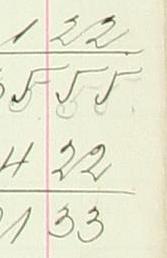 1 22
55 55
4 22
21 33